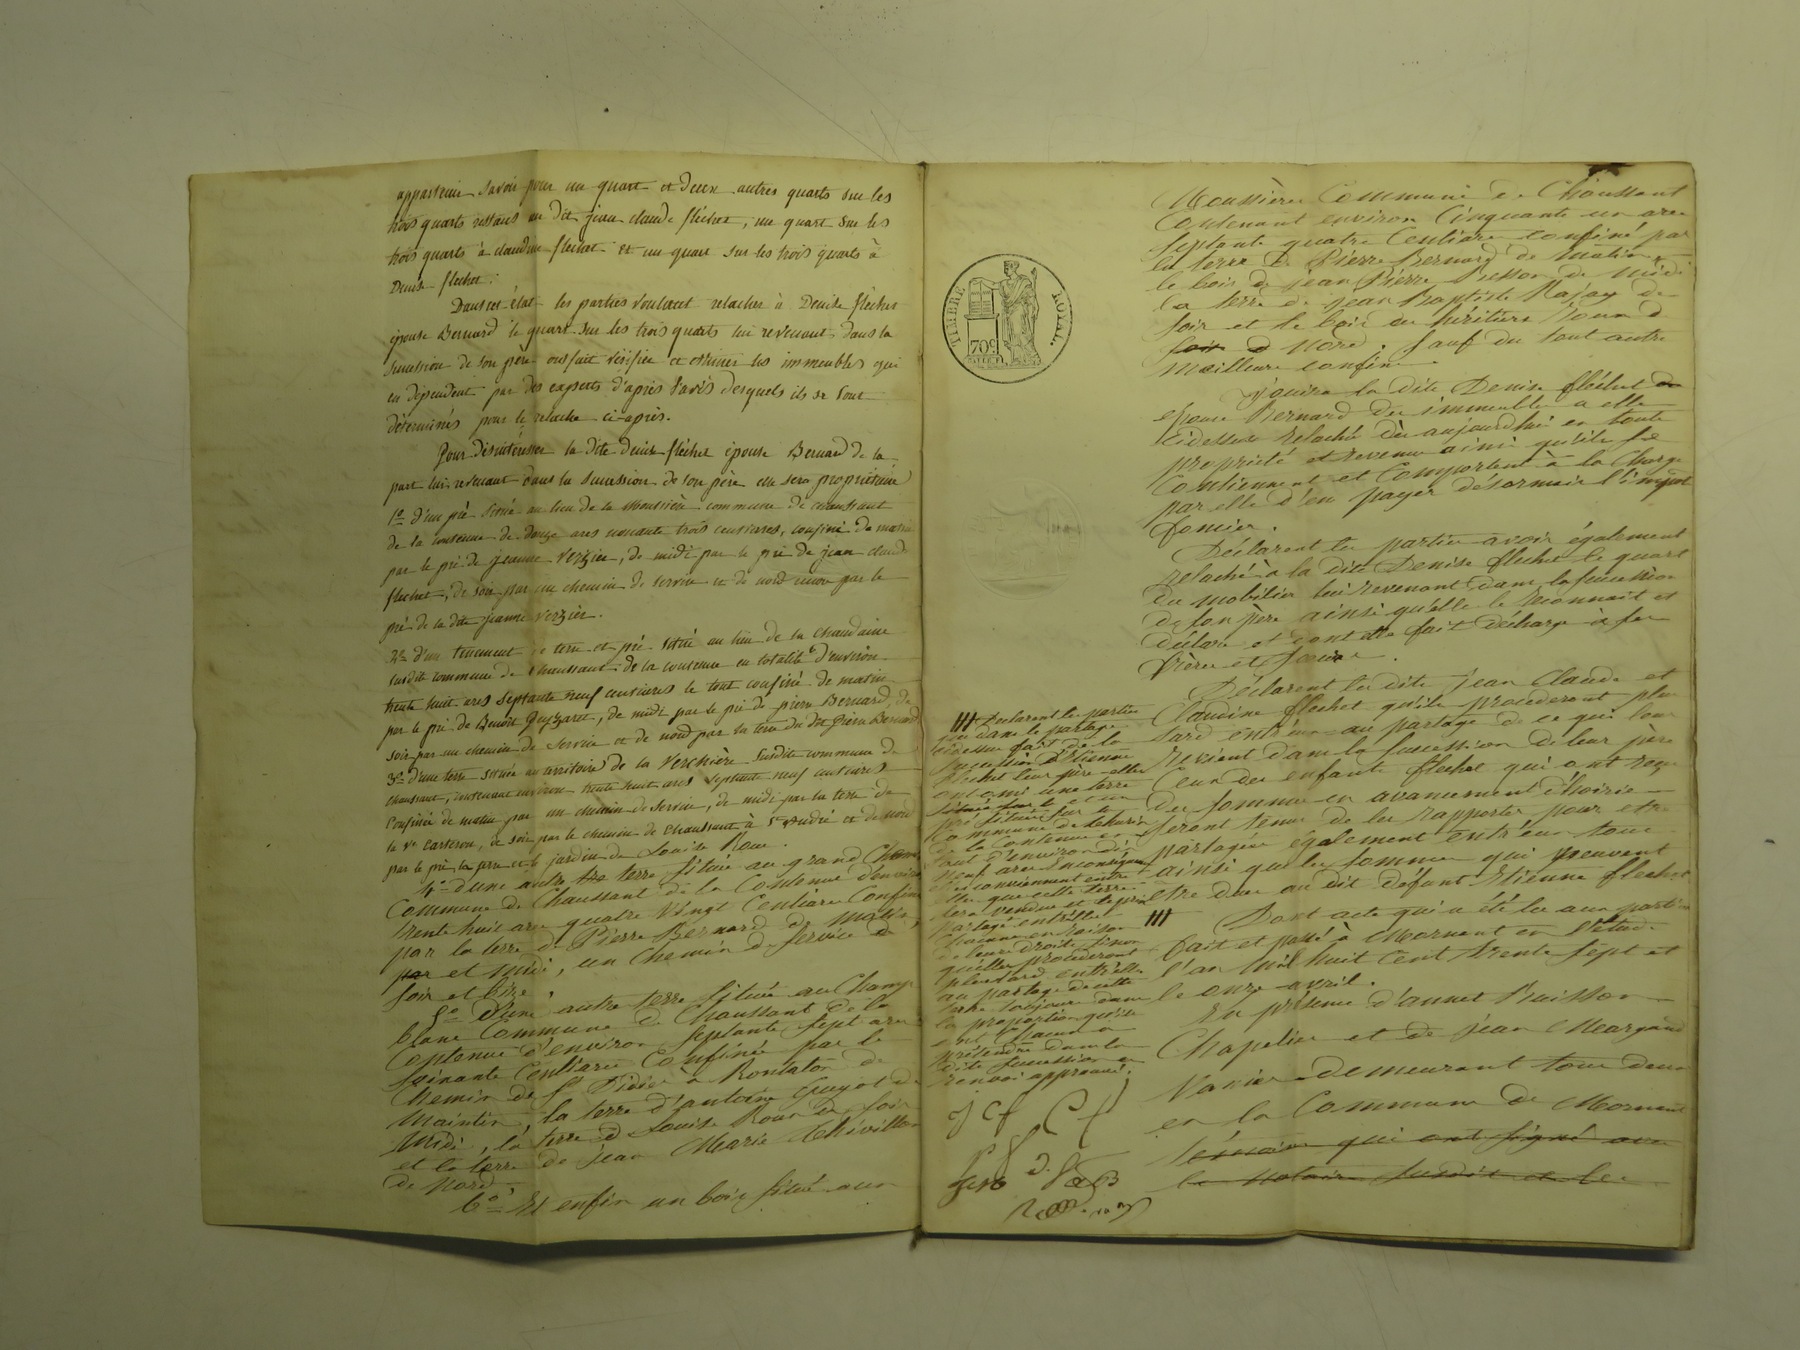 appartenir Savoir pour un quart et deux autres quarts sur les
trois quarts restants au dit jean claude fléchet, un quart sur les
trois quarts à claudine flechet et un quart sur les trois quarts à
Denise flechet.
Dans cet état les parties voulant relacher à Denise fléchet
épouse Bernard le quart sur les trois quarts lui revenant dans la
succession de son père ont fait vérifier et estimer les immeubles qui
en dépendent par des experts d'après l'avis desquels ils se sont
déterminés pour le relache ci-après.
Pour désintéresser la dite denise fléchet épouse Bernard de la
part lui revenant dans la succession de son père elle sera propriétaire
1º d'un pré situé au lieu de la Moussière commune de chaussant
de la contenue de douze ares nonante trois centiares, confiné de matin
par le pré de jeanne Verzier, de midi par le pré de jean claude
flechet, de soir par un chemin de service et de nord encore par le
pré de la dite jeanne verzier.
2º d'un tenement de terre et pré situé au lieu de la chaudaine
susdite commune de chaussant de la contenue en totalité d'environ
trente huit ares septante neuf centiares le tout confiné de matin
par le pré de Benoit Guyzard, de midi par le pré de pierre Bernard, de
soir par un chemin de service et de nord par la terre du dit pierre Bernard
3º d'une terre située au territoire de la Verchère susdite commune de
chaussant, contenant environ trente huit ares septante neuf centiares
confinée de matin par un chemin de service, de midi par la terre de
la Ve carteron, de soir par le chemin de chaussant à St andré et de nord
par le pré la terre et le jardin de Louise Roux.
4º d'une autre terre située au grand Champ
Commune de Chaussant de la Contenue d'environ
trente huit ares quatre vingt Centiares Confinée
par la terre de Pierre Bernard de matin
par et midi, un Chemin de service de
soir et bise.
5º D'une autre terre située au Champ
blanc Commune de Chaussant de la
Contenue d'environ septante sept ares
soixante Centiares Confinée par le
Chemin de St Didier à Rontalon de
Maintin, la terre d'antoine Guyot de
Midi, la terre de Louise Roux de soir
et la terre de jean Marie Thévillon
de Nord.
6º Et enfin un bois situé aux
TIMBRE ROYAL.
70c
Moussières Commune de Chaussant
Contenant environ Cinquante un ares
septante quatre Centiares confiné par
la terre de Pierre Bernard de matin,
le bois de jean Pierre Besson de midi
la terre de jean Baptiste Rajay de
soir et le bois des héritiers Roux d
soir d Nord. sauf du tout autre
meilleurs confins.
jouira la dite Denise fléchet
épouse Bernard des immeubles a elle
cidessus relachés dès aujourd'hui en toute
propriété et revenu ainsi qu'ils se
Contiennent et Comportent à la Charge
par elle d'en payer désormais l'impot
foncier.
Déclarent les parties avoir également
relaché à la dite Denise flechet le quart
du mobilier lui revenant dans la succession
de son père ainsi qu'elle le reconnait et
déclare et dont elle fait décharge à ses
frère et sœur.
Déclarent les dits jean Claude et
Claudine flechet qu'ils procéderont plus
tard entr'eux au partage de ce qui leur
revient dans la succession de leur père
Ceux des enfants flechet qui ont reçu
des sommes en avancement d'hoirie
seront tenus de les rapporter pour etre
partagées également entr'eux tous
ainsi que les sommes qui peuvent
etre dues au dit défunt Etienne flechet
Dont acte qui a été lu aux parties
fait et passé à Mornant en l'étude
l'an Mil huit Cent trente sept et
le onze avril.
En présence d'annet Buisson
Chapelier et de jean Margand
Vanier demeurant tous deux
en la Commune de Mornant
témoins qui ont signé avec
le notaire susdit et les
Déclarent les parties
que dans le partage
cidessus fait de la
succession d'Etienne
flechet leur père elles
ont omi une terre
située sur le et un
pré situés sur la
Commune de
de la Contenue en
tout d'environ dix
neuf ares En conséquence
elles conviennent entre
elles que cette terre
sera vendue et le prix
partagé entr'elles
chacune en raison
de leurs droits, sinon
qu'elles procéderont
plus tard entr'elles
au partage de cette
terre toujours dans
la proportion qu'elles
ont chacun a
prétendre dans la
dite succession
renvoi approuvé.
j C f C f